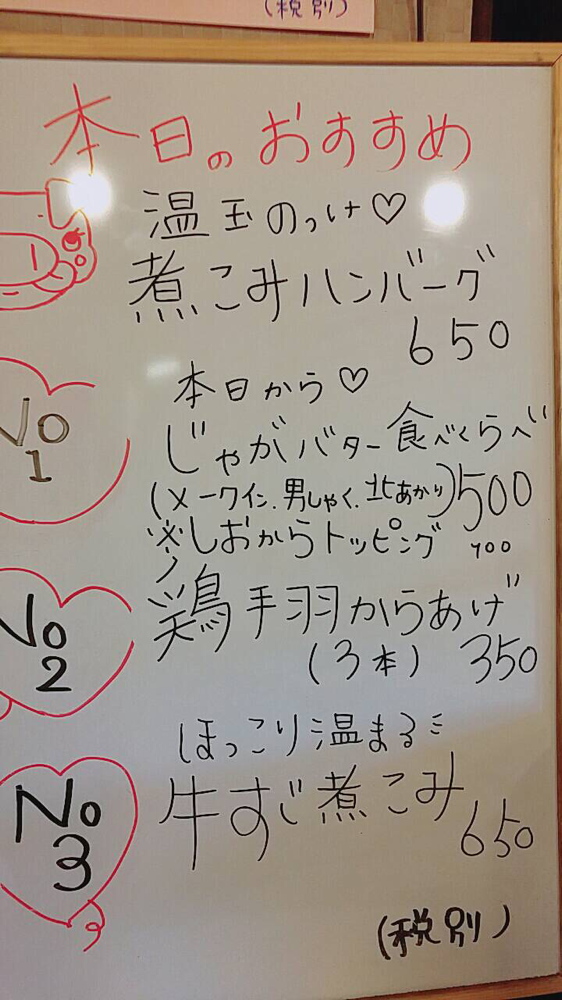 (税別)
本日のおすすめ
温玉のっけ♡
煮こみハンバーグ
650
No
1
本日から♡
じゃがバター食べくらべ
(メークイン.男しゃく.北あかり)500
※しおからトッピング 100
No
2
鶏手羽からあげ
(3本) 350
No
3
ほっこり温まる
牛すじ煮こみ
650
(税別)